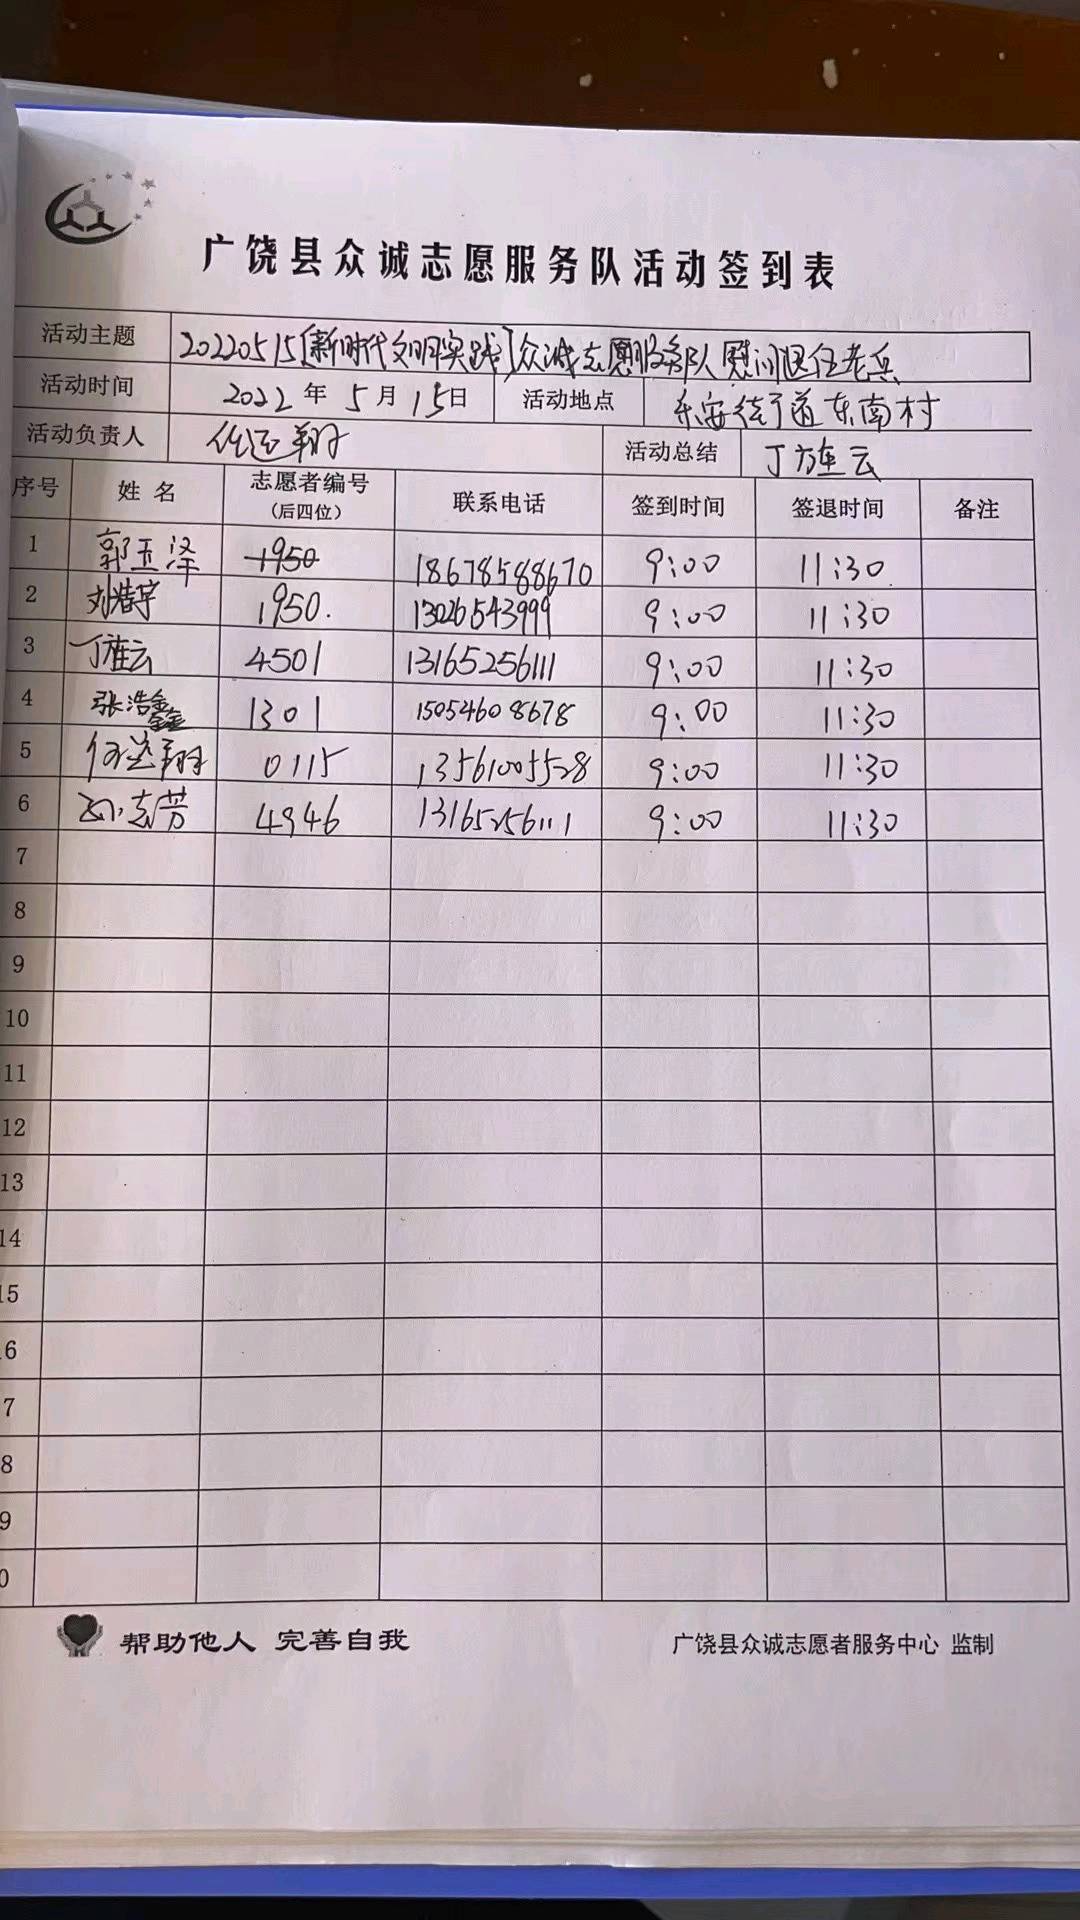 广饶县众诚志愿服务队活动签到表
活动主题 20220515[新时代文明实践]众诚志愿服务队慰问退伍老兵
活动时间 2022年5月15日 活动地点 乐安街道东南村
活动负责人 任运翔 活动总结 丁旌云
序号 姓名 志愿者编号(后四位) 联系电话 签到时间 签退时间 备注
1 郭玉泽 1950 18678588670 9:00 11:30
2 刘浩宇 1950. 13026543999 9:00 11:30
3 丁旌云 4501 13165256111 9:00 11:30
4 张浩鑫 1301 15054608678 9:00 11:30
5 翔 0115 13561005528 9:00 11:30
6 孙志芳 4946 13165256111 9:00 11:30
7
8
9
10
11
12
13
14
15
6
7
8
9
0
帮助他人 完善自我 广饶县众诚志愿者服务中心 监制